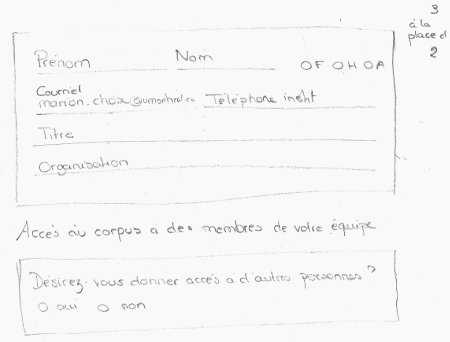 3
à la
place d
2
Prénom Nom OF OH OA
Courriel
manon.choix@umontreal.ca Téléphone instit
Titre
Organisation
Accès au corpus à des membres de votre équipe
Désirez-vous donner accès à d'autres personnes ?
O oui O non